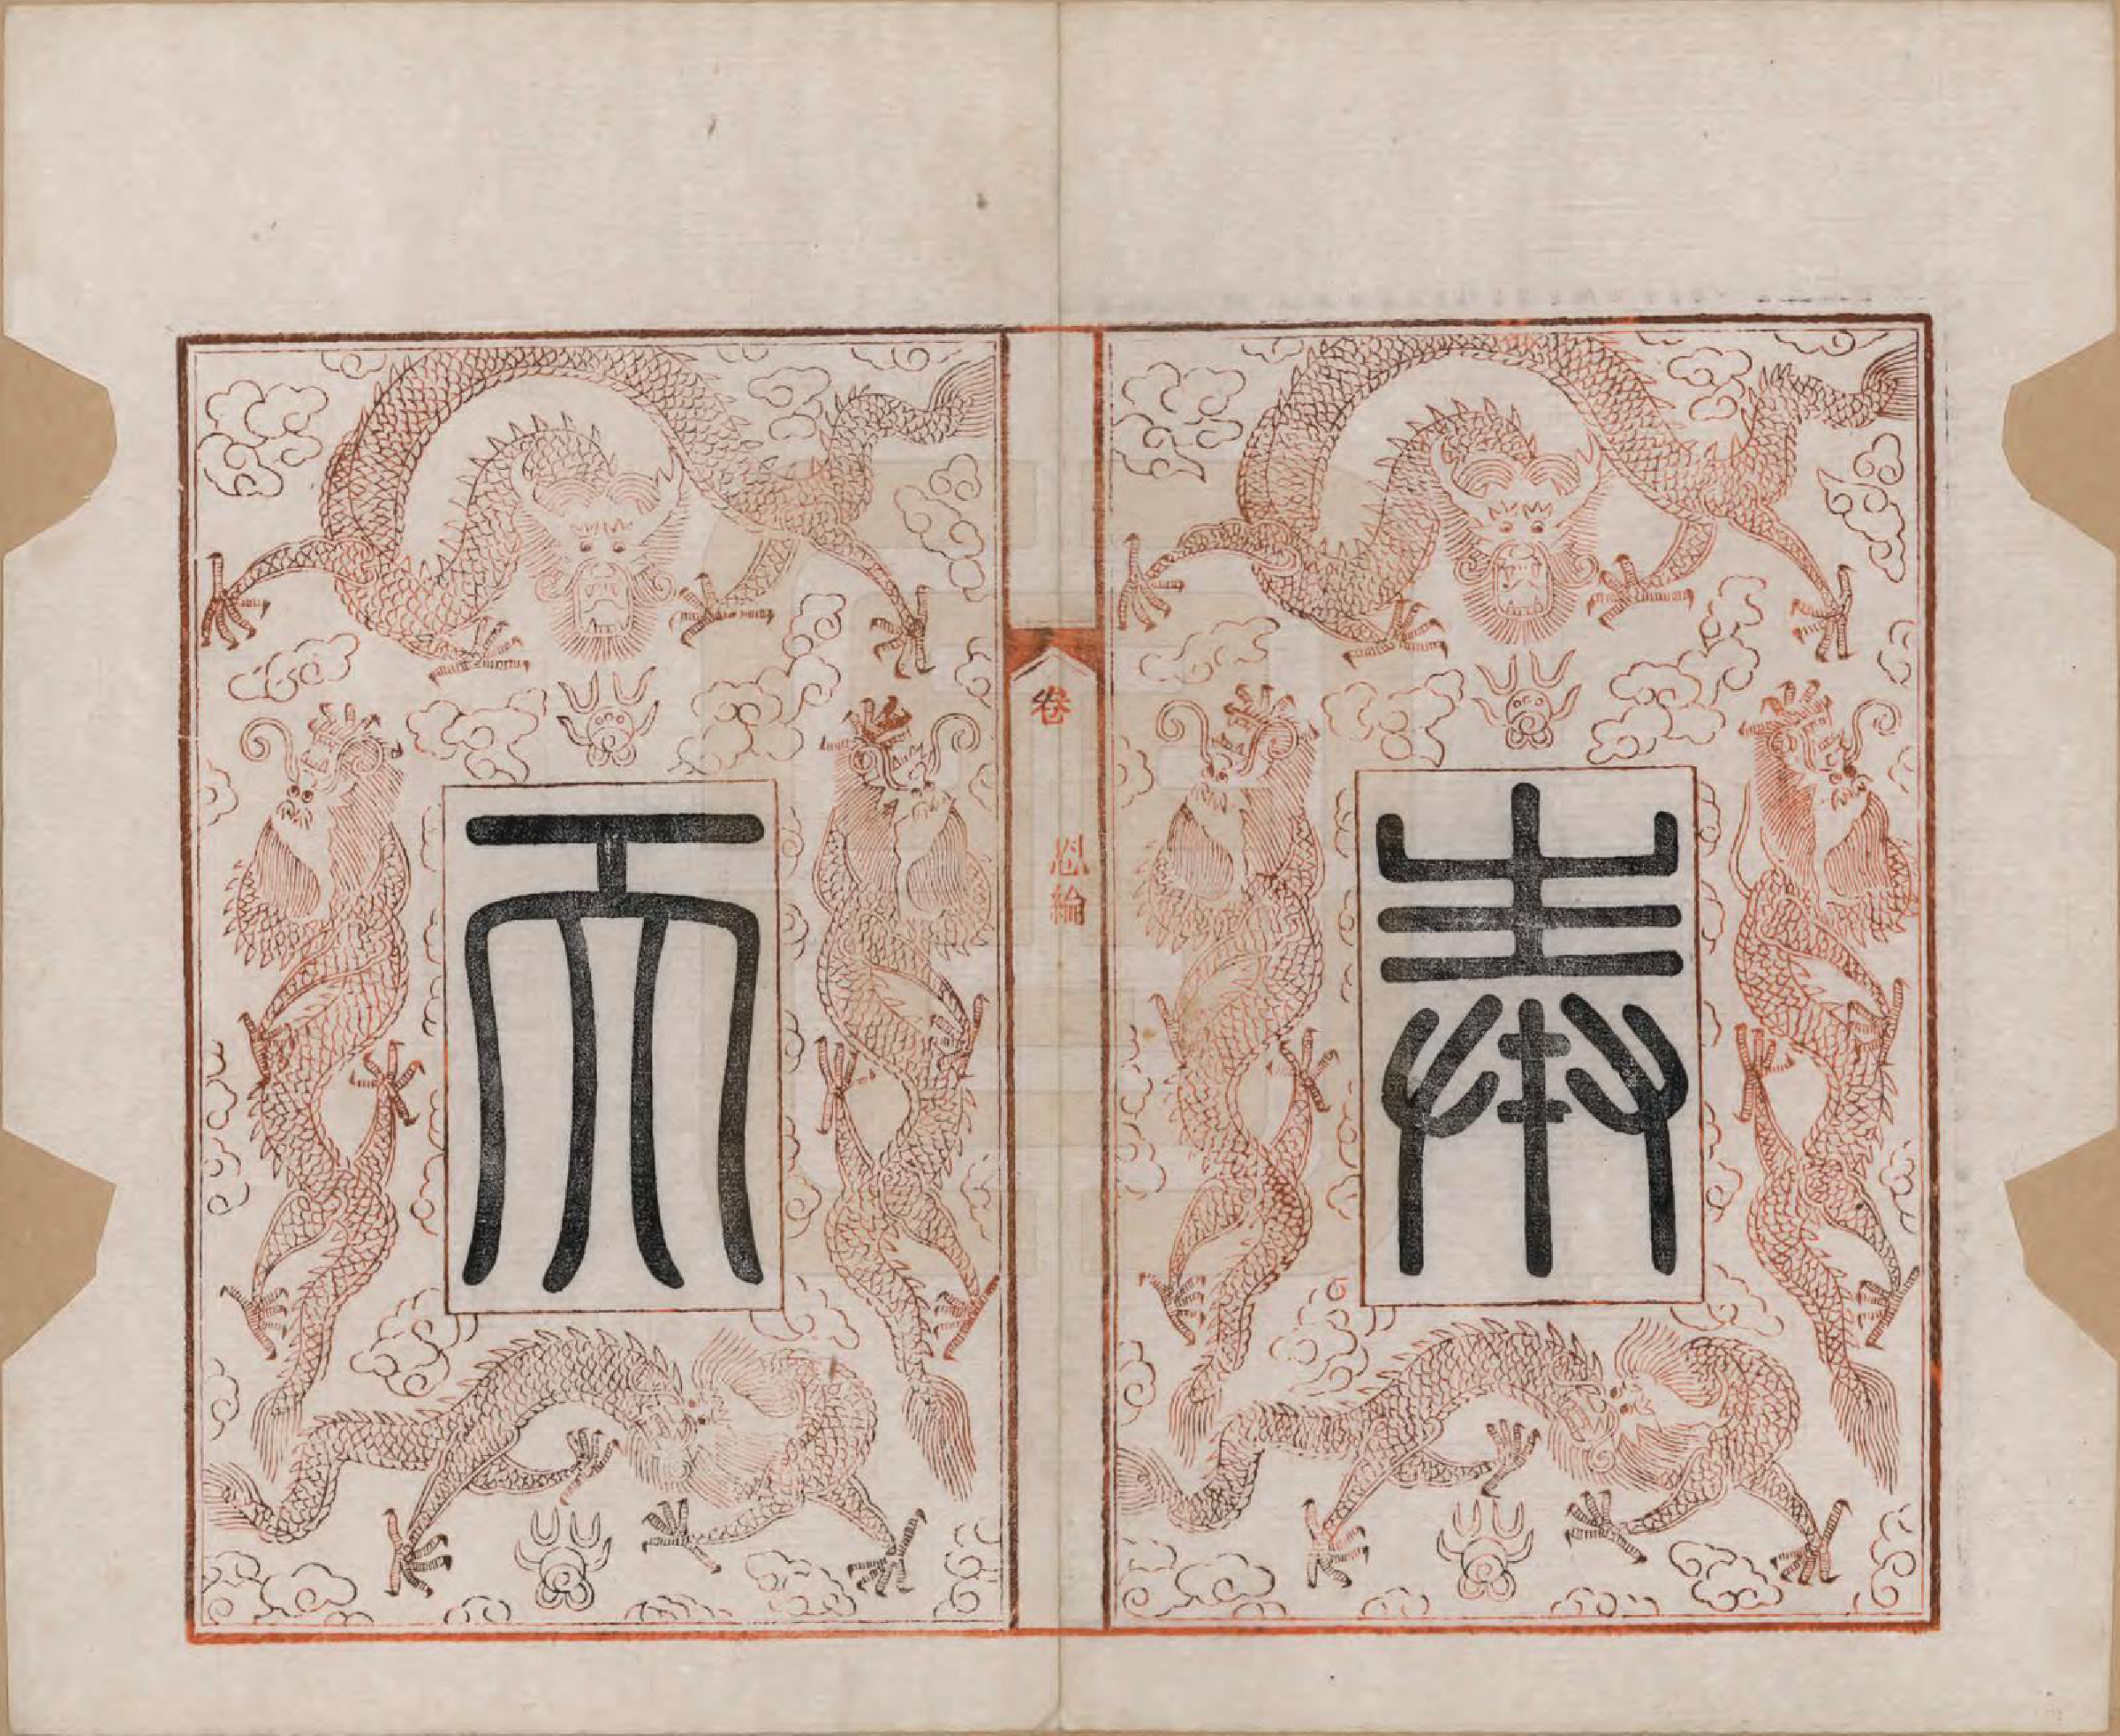 奉
卷
恩綸
天